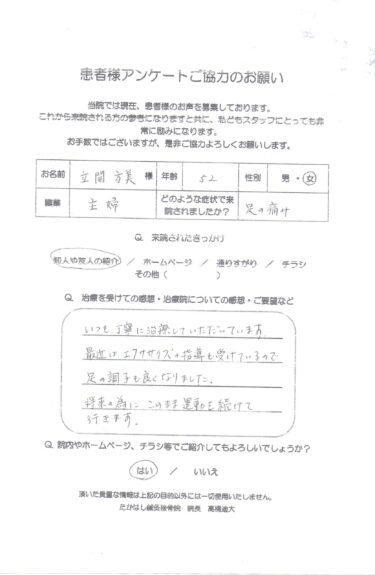 患者様アンケートご協力のお願い
当院では現在、患者様のお声を募集しております。
これから来院される方の参考になりますと共に、私どもスタッフにとっても非
常に励みになります。
お手数ではございますが、是非ご協力よろしくお願いします。
お名前 立間 方美 様 年齢 52 性別 男・女
職業 主婦 どのような症状で来院されましたか? 足の痛み
Q. 来院されたきっかけ
知人や友人の紹介 / ホームページ / 通りすがり / チラシ
その他( )
Q. 治療を受けての感想・治療院についての感想・ご要望など
いつも丁寧に治療していただいています。
最近は エクササイズの指導も受けているので
足の調子も良くなりました。
将来の為に このまま運動を続けて
行きます。
Q. 院内やホームページ、チラシ等でご紹介してもよろしいでしょうか?
はい / いいえ
頂いた貴重な情報は上記の目的以外には一切使用いたしません。
たかはし鍼灸接骨院 院長 高橋